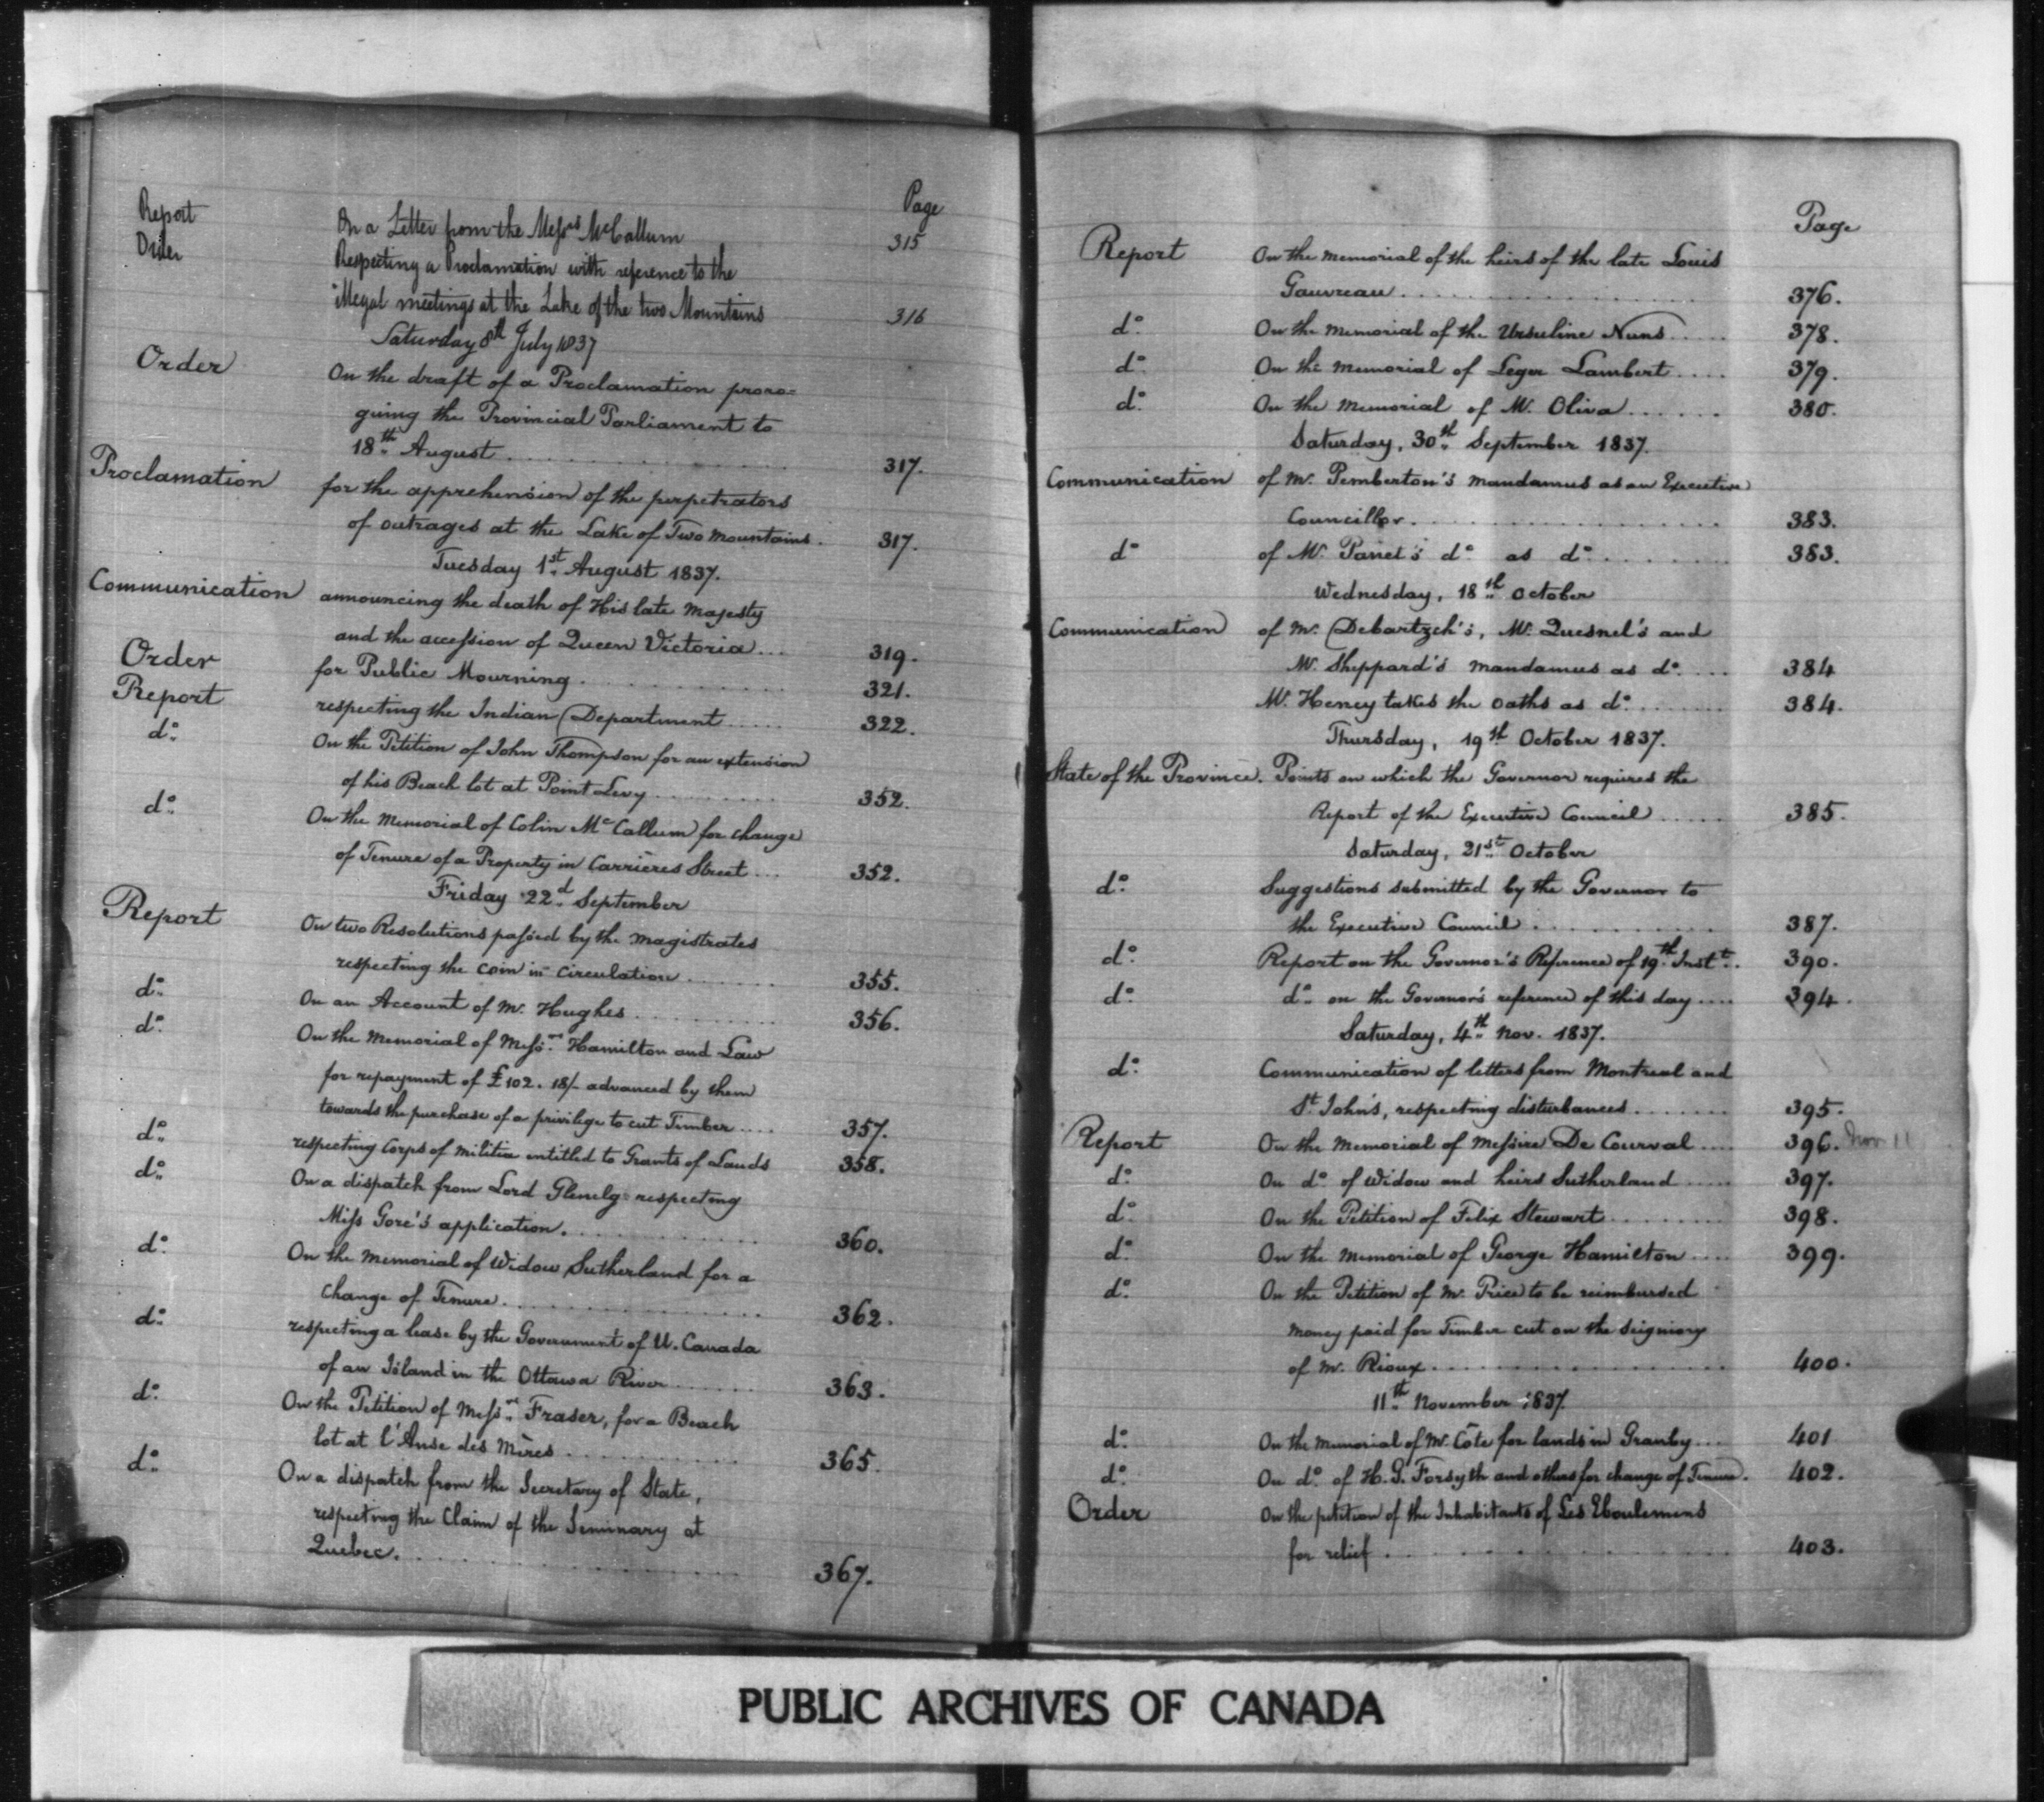 Page
Report On a Letter from the Messrs McCallum 315
Order Respecting a Proclamation with reference to the
illegal meetings at the Lake of the two Mountains 316
Saturday 8th July 1837
Order On the draft of a Proclamation proro=
guing the Provincial Parliament to
18th August 317.
Proclamation for the apprehension of the perpetrators
of outrages at the Lake of Two Mountains. 317.
Tuesday 1st August 1837.
Communication announcing the death of His late Majesty
and the accession of Queen Victoria 319.
Order for Public Mourning 321.
Report respecting the Indian Department 322.
do On the Petition of John Thompson for an extension
of his Beach lot at Point Levy 352.
do On the Memorial of Colin McCallum for change
of Tenure of a Property in Carrières Street 352.
Friday 22d September
Report On two Resolutions passed by the magistrates
respecting the coin in circulation 355.
do On an Account of Mr. Hughes 356.
do On the Memorial of Messrs Hamilton and Law
for repayment of £102. 18/- advanced by them
towards the purchase of a privilege to cut Timber 357.
do respecting Corps of Militia entitled to Grants of Lands 358.
do On a dispatch from Lord Glenelg respecting
Miss Gore's application. 360.
do On the Memorial of Widow Sutherland for a
change of Tenure 362.
do respecting a lease by the Government of U. Canada
of an Island in the Ottawa River 363.
do On the Petition of Messrs Fraser, for a Beach
lot at l'Anse des Mères 365.
do On a dispatch from the Secretary of State,
respecting the Claim of the Seminary at
Quebec. 367.
Page
Report On the Memorial of the heirs of the late Louis
Gauvreau 376.
do On the Memorial of the Ursuline Nuns 378.
do On the Memorial of Leger Lambert 379.
do On the Memorial of Mr. Oliva 380.
Saturday, 30th September 1837.
Communication of Mr. Pemberton's Mandamus as an Executive
Councillor. 383.
do of Mr. Panet's do as do 383.
Wednesday, 18th October
Communication of Mr. Debartzch's, Mr. Quesnel's and
Mr. Sheppard's Mandamus as do 384
Mr. Heney takes the oaths as do 384.
Thursday, 19th October 1837.
State of the Province. Points on which the Governor requires the
Report of the Executive Council 385.
Saturday, 21st October
do Suggestions submitted by the Governor to
the Executive Council 387.
do Report on the Governor's Reference of 19th Inst. 390.
do do on the Governor's reference of this day 394.
Saturday, 4th Nov. 1837.
do Communication of letters from Montreal and
St. John's, respecting disturbances 395.
Report On the Memorial of Messire De Courval 396. Nov 11
do On do of Widow and heirs Sutherland 397.
do On the Petition of Felix Stewart 398.
do On the Memorial of George Hamilton 399.
do On the Petition of Mr. Price to be reimbursed
money paid for Timber cut on the Seigniory
of Mr. Rioux 400.
11th November 1837
do On the Memorial of Mr. Côte for lands in Granby 401
do On do of H. G. Forsyth and others for change of Tenure. 402.
Order On the petition of the Inhabitants of Les Eboulemens
for relief 403.
PUBLIC ARCHIVES OF CANADA